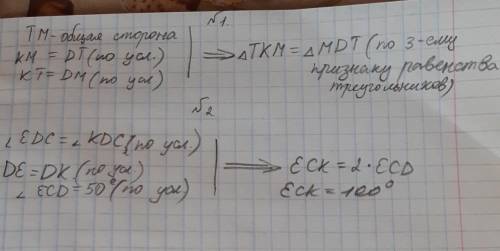 №1.
TM-общая сторона
KM = DT (по усл.)
KT = DM (по усл)
⟹ △TKM = △MDT (по 3-ему
признаку равенства
треугольников)
№2
∠EDC = ∠KDC (по усл)
DE = DK (по усл)
∠ECD = 50° (по усл)
⟹ ECK = 2 · ECD
ECK = 100°